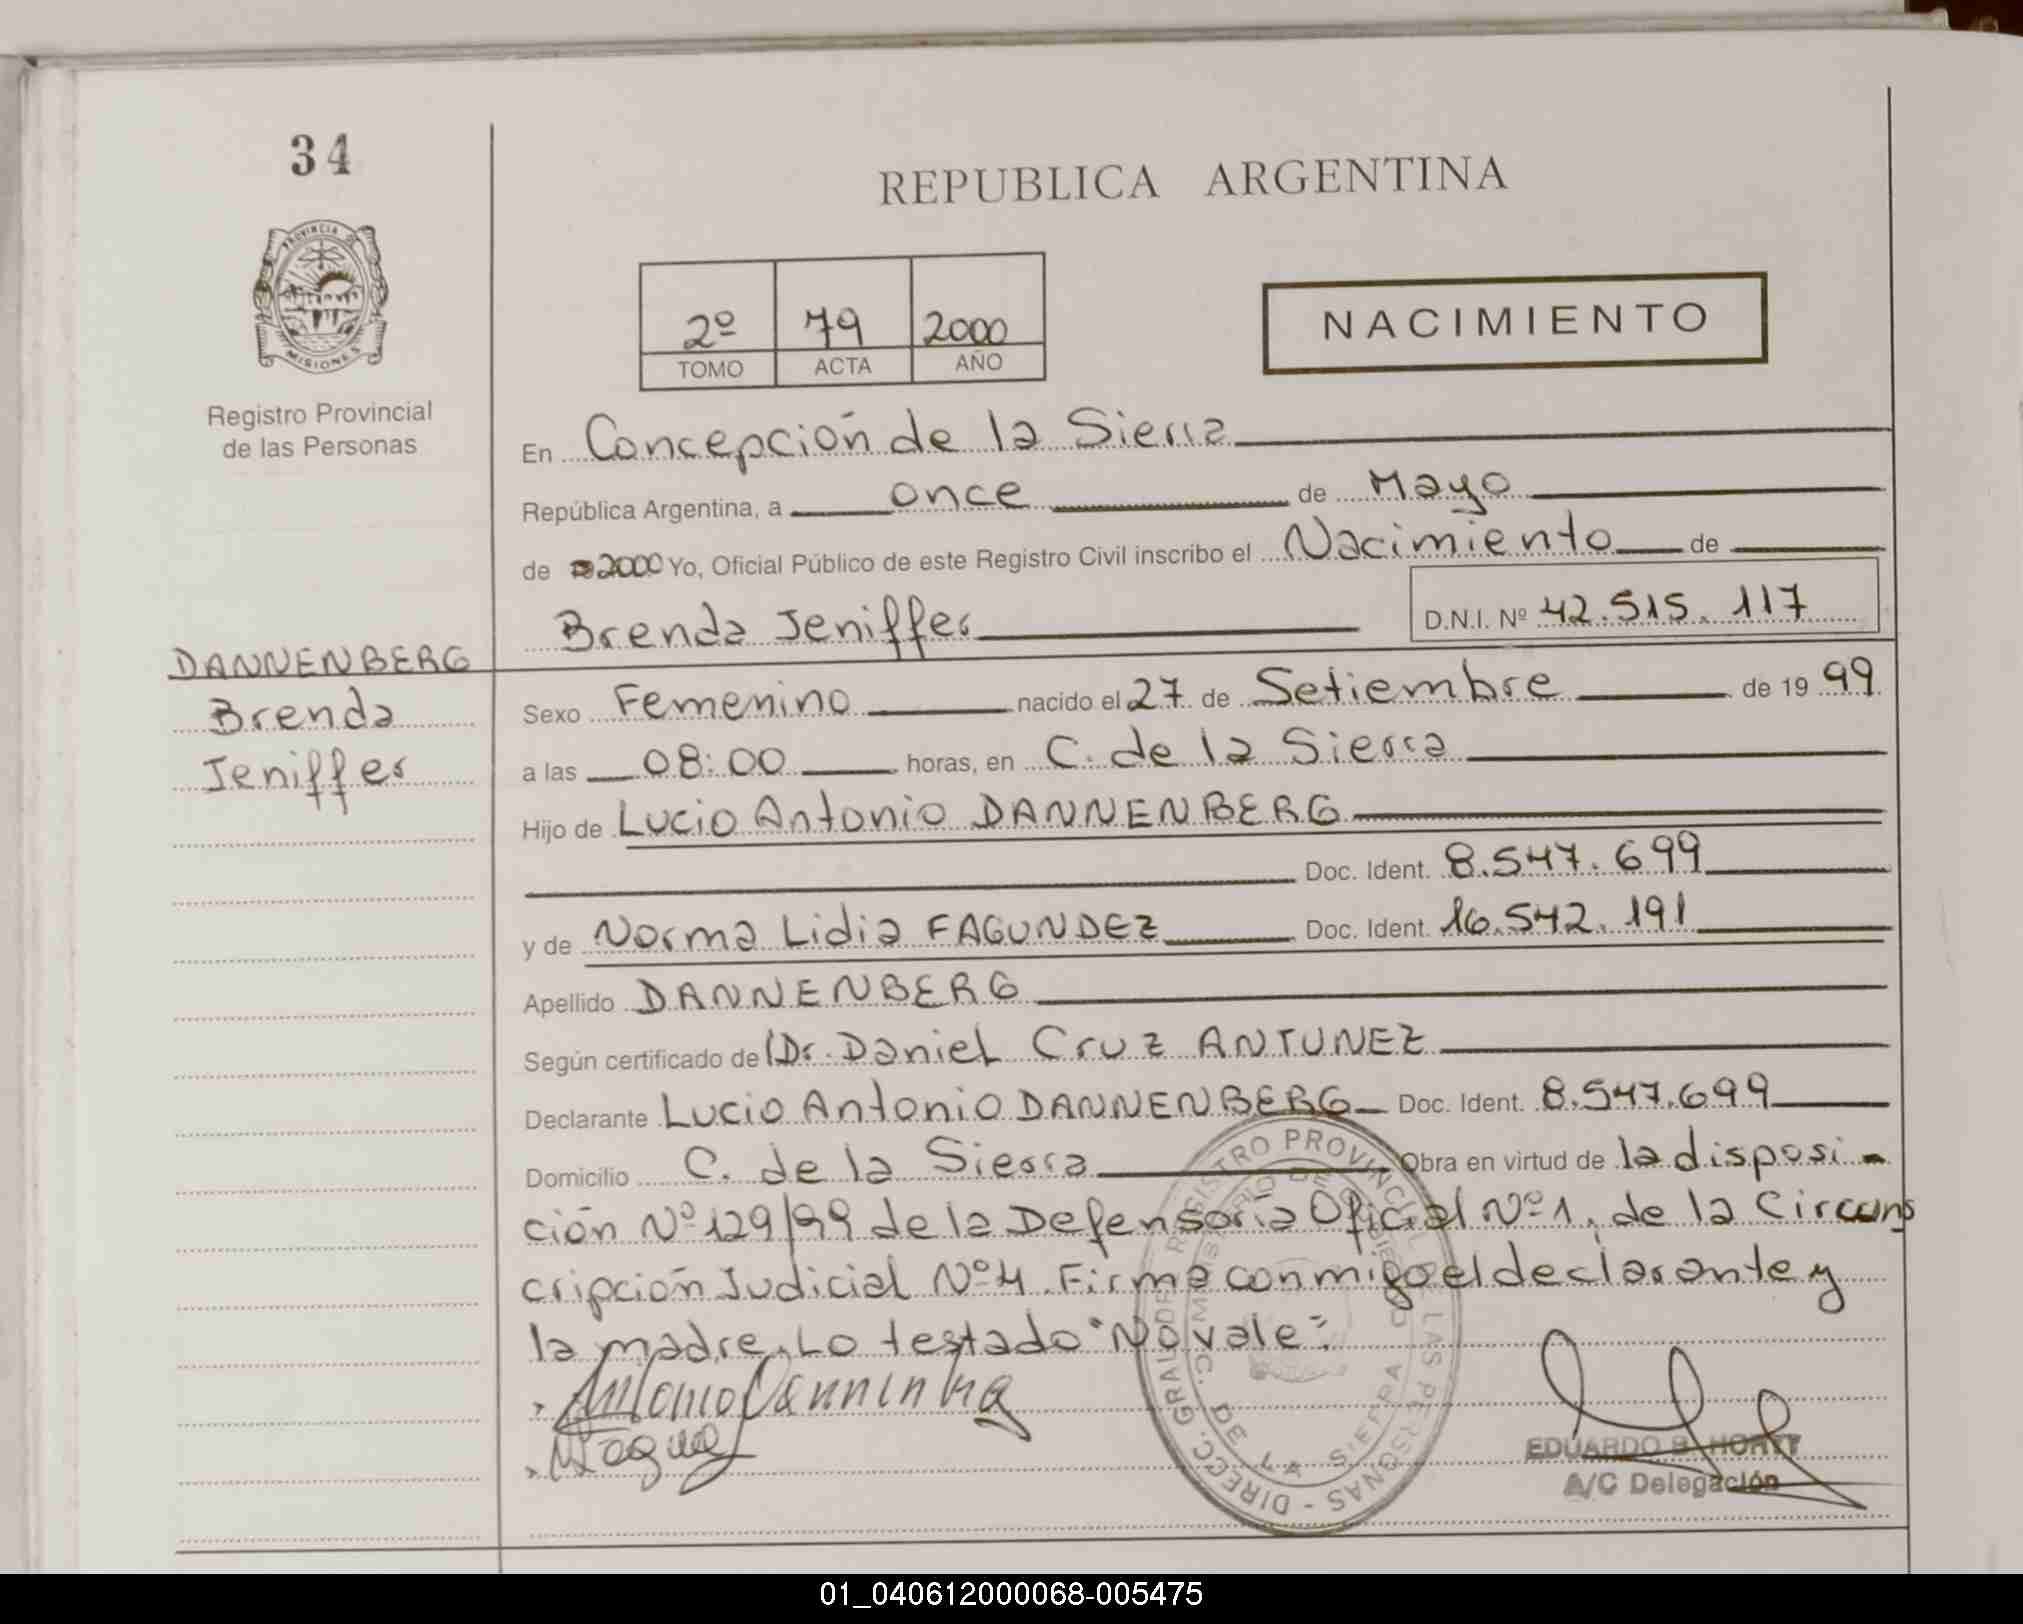 34
REPUBLICA ARGENTINA
PROVINCIA DE MISIONES
2º 79 2000
TOMO ACTA AÑO
NACIMIENTO
Registro Provincial
de las Personas
En Concepción de la Sierra
República Argentina, a once de Mayo
de 2000 Yo, Oficial Público de este Registro Civil inscribo el Nacimiento de
Brenda Jeniffer D.N.I. Nº 42.515.117
DANNENBERG
Brenda
Jeniffer
Sexo Femenino nacido el 27 de Setiembre de 19 99
a las 08:00 horas, en C. de la Sierra
Hijo de Lucio Antonio DANNENBERG
Doc. Ident. 8.547.699
y de Norma Lidia FAGUNDEZ Doc. Ident. 16.542.191
Apellido DANNENBERG
Según certificado de Dr. Daniel Cruz ANTUNEZ
Declarante Lucio Antonio DANNENBERG Doc. Ident. 8.547.699
Domicilio C. de la Sierra Obra en virtud de la disposi-
ción Nº 129/99 de la Defensoría Oficial Nº 1, de la Circuns
cripción Judicial Nº 4. Firma conmigo el declarante y
la madre. Lo testado "No vale".
Antonio
REGISTRO PROVINCIAL DE LAS PERSONAS - DIRECC. GRAL. DE
DE LA SIERRA
EDUARDO
A/C Delegación
01_040612000068-005475